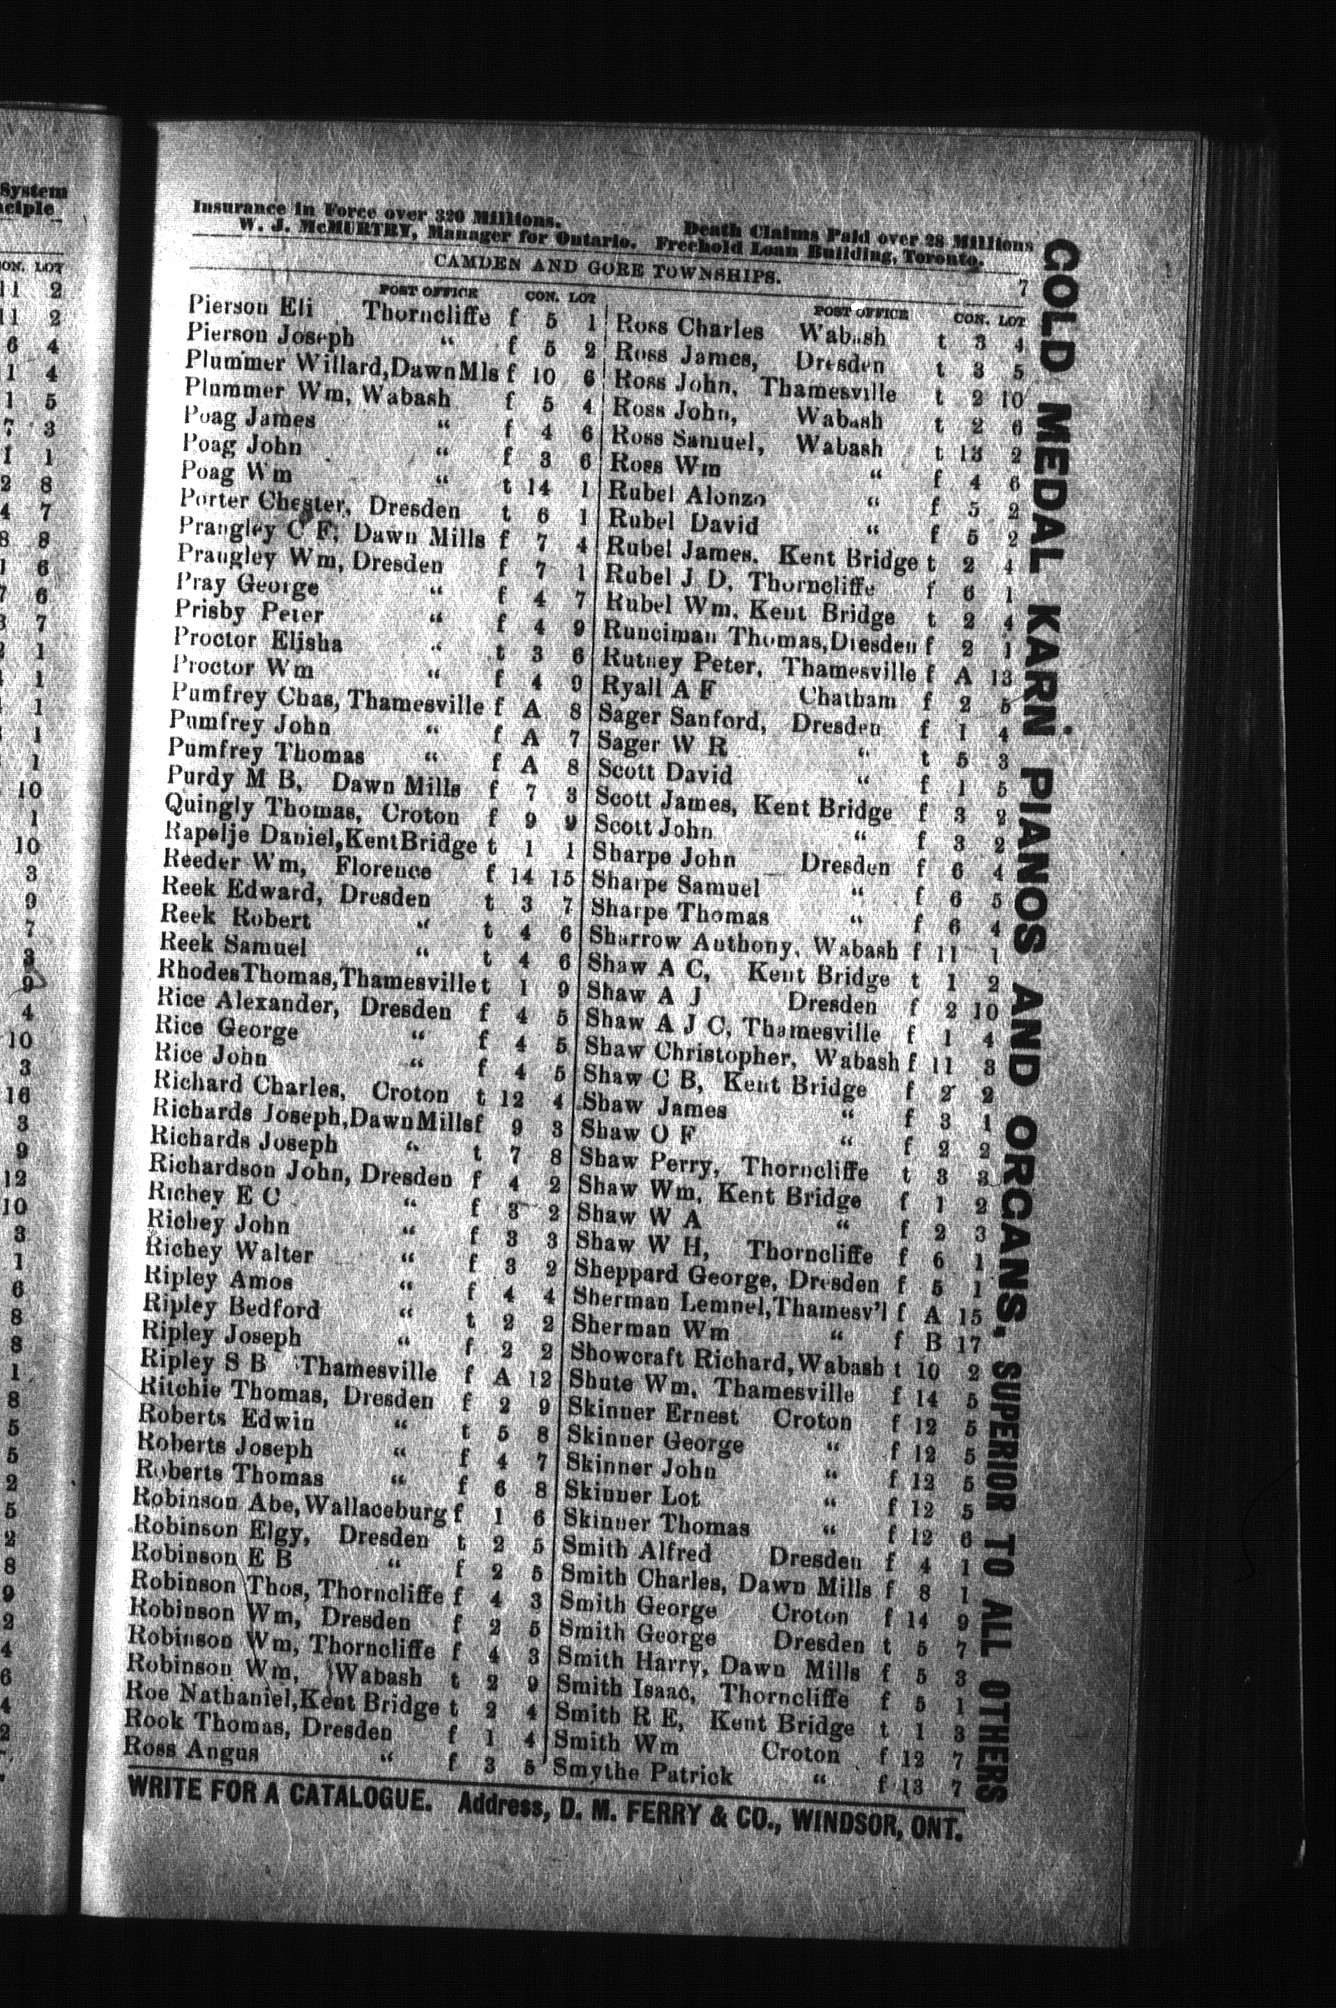 System
nciple
CON. LOT
11 2
11 2
6 4
1 4
1 5
7 3
1 1
2 8
4 7
8 8
1 6
7 6
3 7
2 1
1
1
1
1
10
1
10
3
9
7
3
9
4
10
3
16
3
9
12
10
3
1
6
8
8
1
8
5
5
2
5
2
8
9
2
4
6
4
2
Insurance in Force over 320 Millions. Death Claims Paid over 28 Millions
W. J. McMURTRY, Manager for Ontario. Freehold Loan Building, Toronto.
CAMDEN AND GORE TOWNSHIPS. 7
POST OFFICE CON. LOT
Pierson Eli Thorncliffe f 5 1
Pierson Joseph " f 5 2
Plummer Willard, Dawn Mls f 10 6
Plummer Wm, Wabash f 5 4
Poag James " f 4 6
Poag John " f 3 6
Poag Wm " t 14 1
Porter Chester, Dresden t 6 1
Prangley C F, Dawn Mills f 7 4
Prangley Wm, Dresden f 7 1
Pray George " f 4 7
Prisby Peter " f 4 9
Proctor Elisha " t 3 6
Proctor Wm " f 4 9
Pumfrey Chas, Thamesville f A 8
Pumfrey John " f A 7
Pumfrey Thomas " f A 8
Purdy M B, Dawn Mills f 7 3
Quingly Thomas, Croton f 9 9
Rapelje Daniel, Kent Bridge t 1 1
Reeder Wm, Florence f 14 15
Reek Edward, Dresden t 3 7
Reek Robert " t 4 6
Reek Samuel " t 4 6
Rhodes Thomas, Thamesville t 1 9
Rice Alexander, Dresden f 4 5
Rice George " f 4 5
Rice John " f 4 5
Richard Charles, Croton t 12 4
Richards Joseph, Dawn Mills f 9 3
Richards Joseph " t 7 8
Richardson John, Dresden f 4 2
Richey E C " f 3 2
Richey John " f 3 3
Richey Walter " f 3 2
Ripley Amos " f 4 4
Ripley Bedford " t 2 2
Ripley Joseph " f 2 2
Ripley S B Thamesville f A 12
Ritchie Thomas, Dresden f 2 9
Roberts Edwin " t 5 8
Roberts Joseph " f 4 7
Roberts Thomas " f 6 8
Robinson Abe, Wallaceburg f 1 6
Robinson Elgy, Dresden t 2 5
Robinson E B " f 2 5
Robinson Thos, Thorncliffe f 4 3
Robinson Wm, Dresden f 2 5
Robinson Wm, Thorncliffe f 4 3
Robinson Wm, Wabash t 2 9
Roe Nathaniel, Kent Bridge t 2 4
Rook Thomas, Dresden f 1 4
Ross Angus " f 3 5
POST OFFICE CON. LOT
Ross Charles Wabash t 3 4
Ross James, Dresden t 3 5
Ross John, Thamesville t 2 10
Ross John, Wabash t 2 6
Ross Samuel, Wabash t 13 2
Ross Wm " f 4 6
Rubel Alonzo " f 5 2
Rubel David " f 5 2
Rubel James, Kent Bridge t 2 4
Rubel J D, Thorncliffe f 6 1
Rubel Wm, Kent Bridge t 2 4
Runciman Thomas, Dresden f 2 1
Rutney Peter, Thamesville f A 13
Ryall A F Chatham f 2 5
Sager Sanford, Dresden f 1 4
Sager W R " t 5 3
Scott David " f 1 5
Scott James, Kent Bridge f 3 2
Scott John " f 3 2
Sharpe John Dresden f 6 4
Sharpe Samuel " f 6 5
Sharpe Thomas " f 6 4
Sharrow Anthony, Wabash f 11 1
Shaw A C, Kent Bridge t 1 2
Shaw A J Dresden f 2 10
Shaw A J C, Thamesville f 1 4
Shaw Christopher, Wabash f 11 3
Shaw C B, Kent Bridge f 2 2
Shaw James " f 3 1
Shaw O F " f 2 2
Shaw Perry, Thorncliffe t 3 3
Shaw Wm, Kent Bridge f 1 2
Shaw W A " f 2 3
Shaw W H, Thorncliffe f 6 1
Sheppard George, Dresden f 5 1
Sherman Lemnel, Thamesv'l f A 15
Sherman Wm " f B 17
Showcraft Richard, Wabash t 10 2
Shute Wm, Thamesville f 14 5
Skinner Ernest Croton f 12 5
Skinner George " f 12 5
Skinner John " f 12 5
Skinner Lot " f 12 5
Skinner Thomas " f 12 6
Smith Alfred Dresden f 4 1
Smith Charles, Dawn Mills f 8 1
Smith George Croton f 14 9
Smith George Dresden t 5 7
Smith Harry, Dawn Mills f 5 3
Smith Isaac, Thorncliffe f 5 1
Smith R E, Kent Bridge t 1 3
Smith Wm Croton f 12 7
Smythe Patrick " f 13 7
GOLD MEDAL KARN PIANOS AND ORGANS, SUPERIOR TO ALL OTHERS
WRITE FOR A CATALOGUE. Address, D. M. FERRY & CO., WINDSOR, ONT.